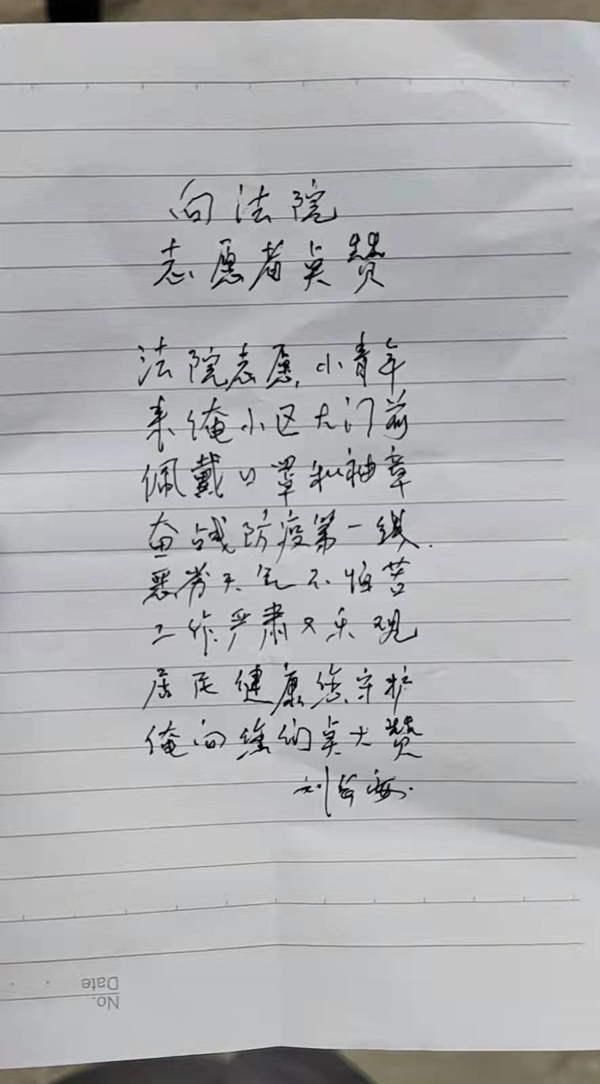 向法院
志愿者点赞
法院志愿小青年
来俺小区大门前
佩戴口罩和袖章
奋战防疫第一线.
恶劣天气不怕苦
工作严肃又乐观
居民健康您守护
俺向您们点大赞
刘
No.
Date